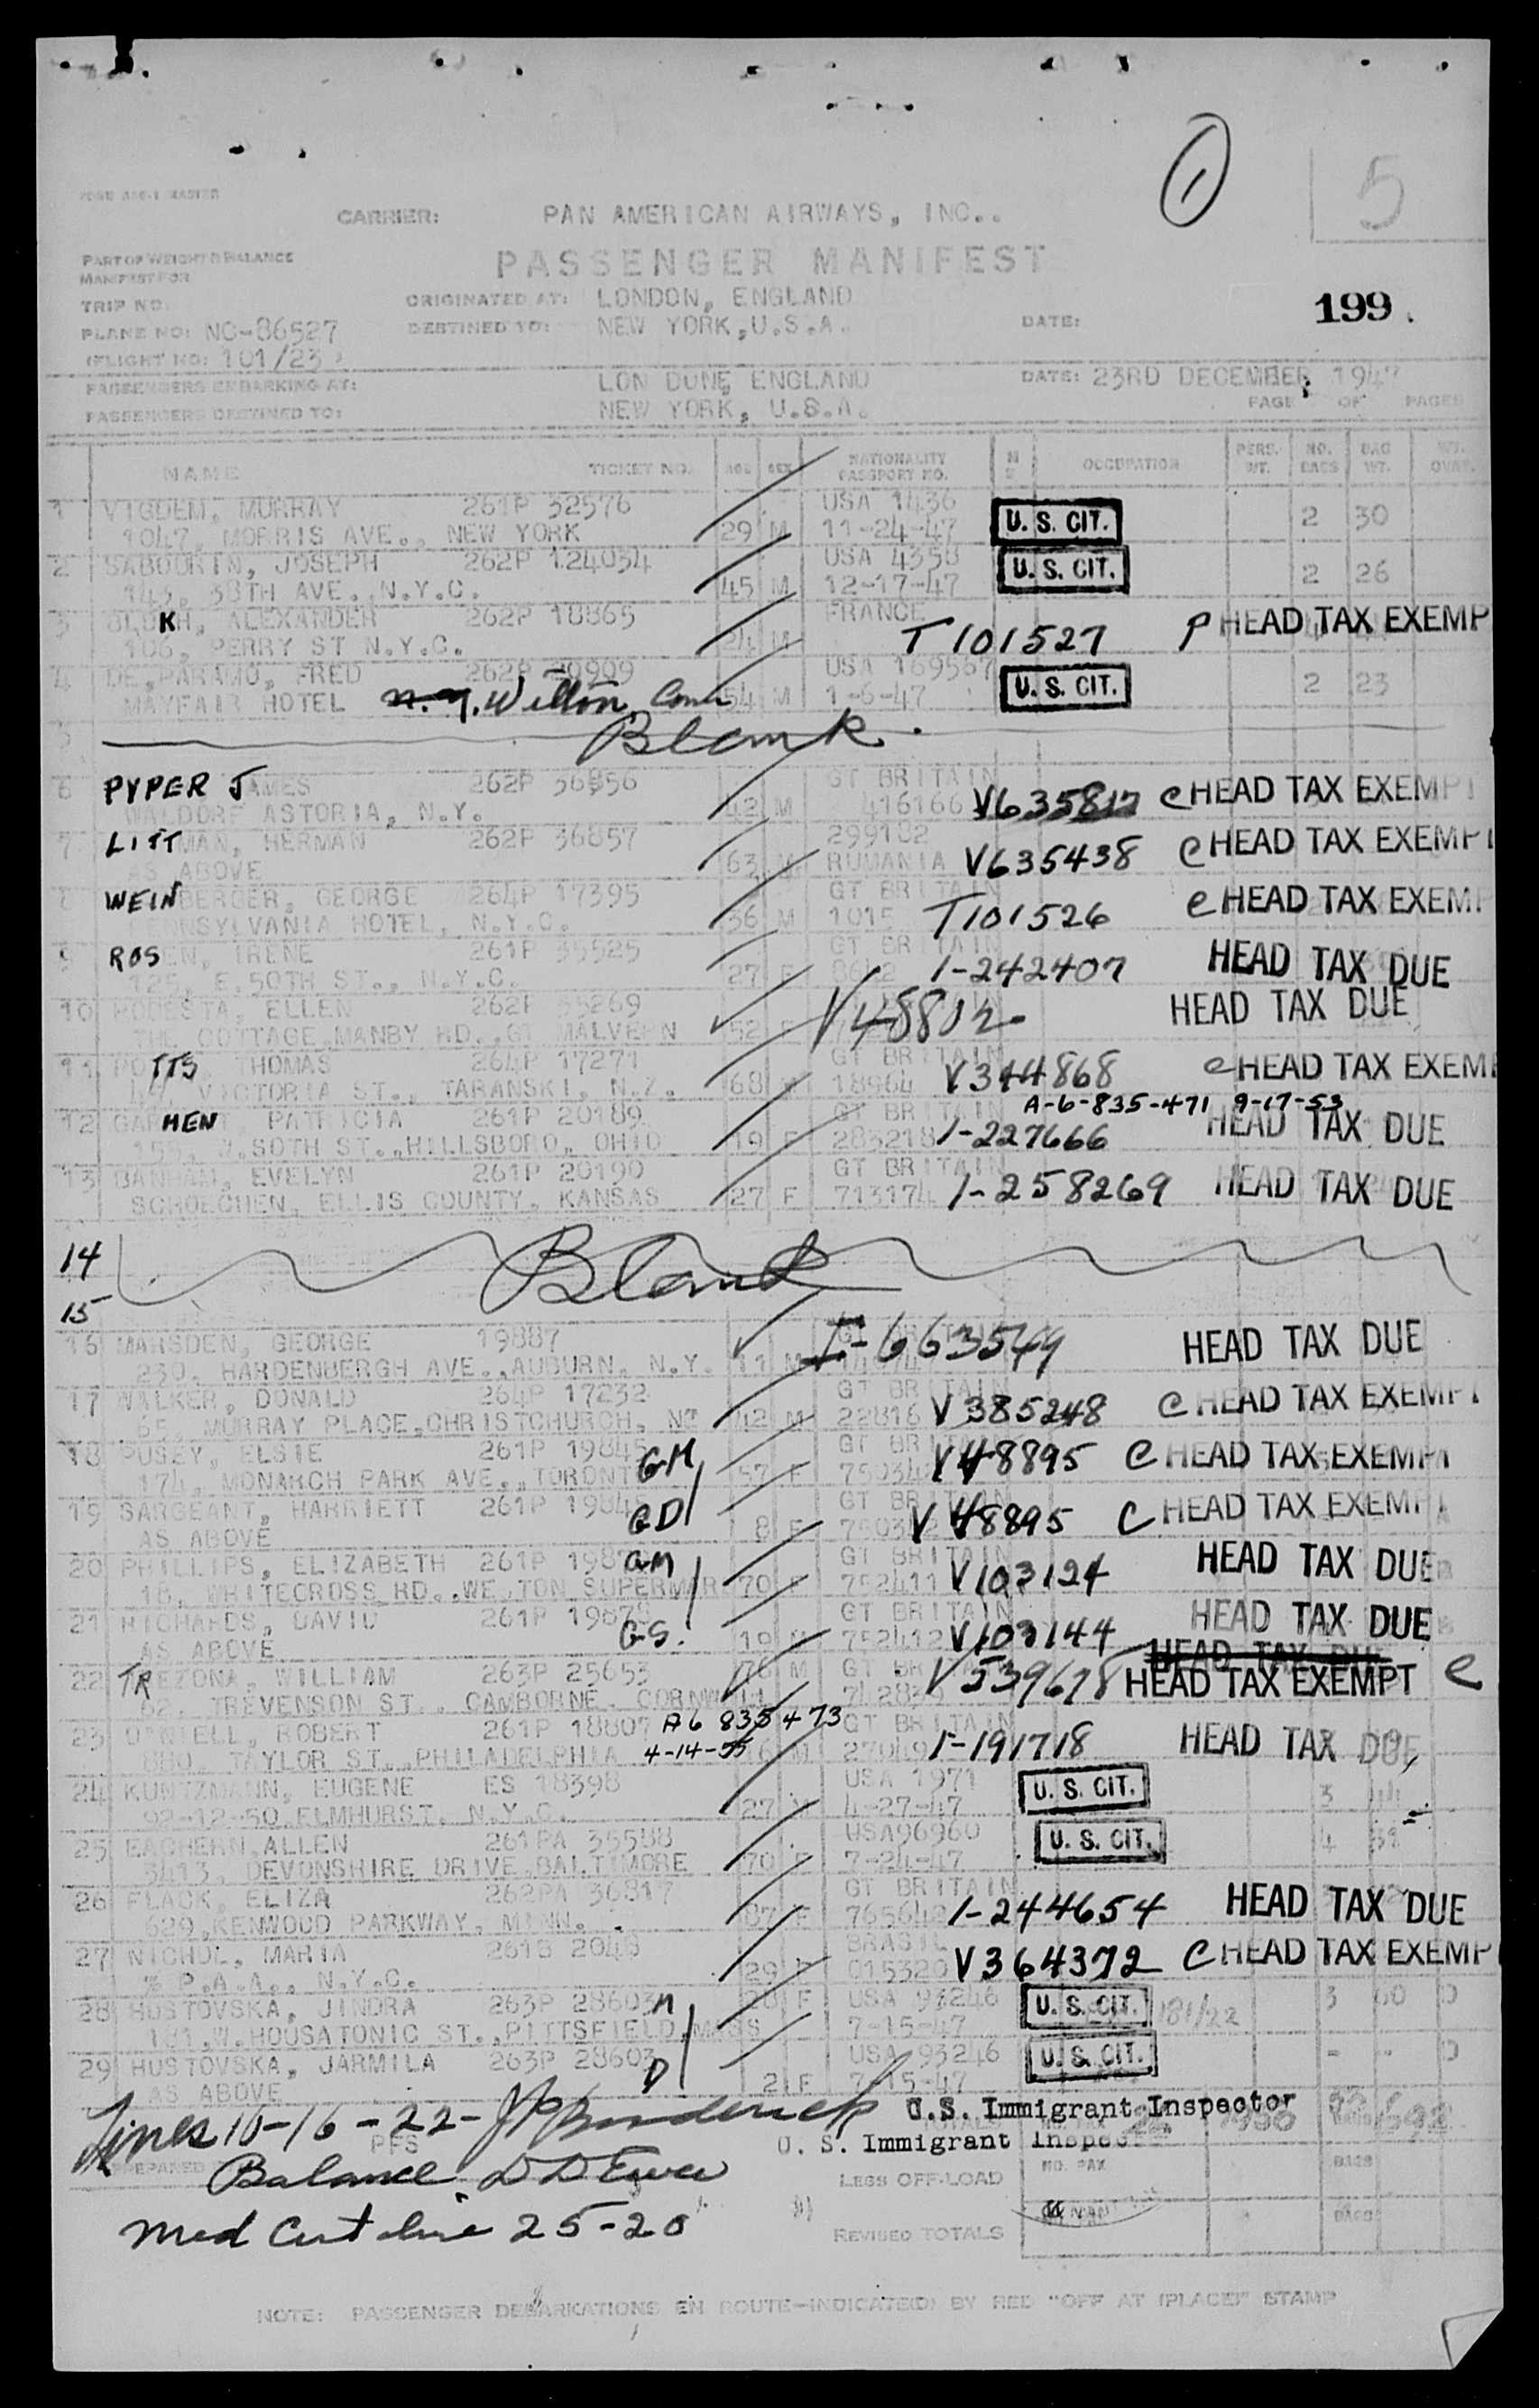 FORM ASC-1 MASTER
1
5
CARRIER: PAN AMERICAN AIRWAYS, INC..
PASSENGER MANIFEST
PART OF WEIGHT & BALANCE
MANIFEST FOR
TRIP NO.
ORIGINATED AT: LONDON, ENGLAND
199.
PLANE NO: NC-86527 DESTINED TO: NEW YORK, U.S.A. DATE:
(FLIGHT NO: 101/23
PASSENGERS EMBARKING AT: LON DON, ENGLAND DATE: 23RD DECEMBER, 1947
PASSENGERS DESTINED TO: NEW YORK, U.S.A. PAGE OF PAGES
NAME TICKET NO. AGE SEX NATIONALITY PASSPORT NO. OCCUPATION PERS. WT. NO. BAGS BAG WT.
1 VIGDEM, MURRAY 261P 32576 USA 1436
1047, MORRIS AVE., NEW YORK 29 M 11-24-47 U. S. CIT. 2 30
2 SABOURIN, JOSEPH 262P 124034 USA 4358
143, 38TH AVE. N.Y.C. 45 M 12-17-47 U. S. CIT. 2 26
3 ALEXANDER 262P 18865 FRANCE
106, PERRY ST N.Y.C. 24 M T 101527 P HEAD TAX EXEMP
4 DE PARAMO, FRED 262P 20909 USA 169567
MAYFAIR HOTEL N.Y. Wilton, Conn 54 M 1-6-47 U. S. CIT. 2 23
5 Blank.
6 PYPER JAMES 262P 36856 GT BRITAIN
WALDORF ASTORIA, N.Y. 42 M 416166 V635817 C HEAD TAX EXEMPT
7 LITTMAN, HERMAN 262P 36857 299182
AS ABOVE 63 M RUMANIA V635438 C HEAD TAX EXEMPT
8 WEINBERGER, GEORGE 264P 17395 GT BRITAIN
PENNSYLVANIA HOTEL, N.Y.C. 36 M 1015 T101526 C HEAD TAX EXEMP
9 ROSEN, IRENE 261P 35525 GT BRITAIN
125, E.50TH ST., N.Y.C. 27 F 1-242407 HEAD TAX DUE
10 PODESTA, ELLEN 262P 35269
THE COTTAGE, MANBY RD., GT MALVERN 52 F V48802 HEAD TAX DUE
11 POTTS THOMAS 264P 17271 GT BRITAIN
VICTORIA ST., TARANSKI, N.Z. 68 M 18964 V344868 C HEAD TAX EXEM
12 GARMENT PATRICIA 261P 20189 GT BRITAIN A-6-835-471 9-17-53
155, W.SOTH ST., HILLSBORO, OHIO 19 F 283218 1-227666 HEAD TAX DUE
13 BANHAM, EVELYN 261P 20190 GT BRITAIN
SCHOECHEN, ELLIS COUNTY, KANSAS 27 F 713174 1-258269 HEAD TAX DUE
14 Blank
15
16 MARSDEN, GEORGE 19887
230, HARDENBERGH AVE., AUBURN, N.Y. 11 M I-663549 HEAD TAX DUE
17 WALKER, DONALD 264P 17232 GT BRITAIN
65, MURRAY PLACE, CHRISTCHURCH, NZ 42 M 22816 V385248 C HEAD TAX EXEMPT
18 PUSEY, ELSIE 261P 19845 GM GT BRITAIN
174, MONARCH PARK AVE., TORONTO 57 F V48895 C HEAD TAX EXEMPT
19 SARGEANT, HARRIETT 261P 19846 GD GT BRITAIN
AS ABOVE 8 F V48895 C HEAD TAX EXEMPT
20 PHILLIPS, ELIZABETH 261P GM GT BRITAIN
16, WHITECROSS RD., WESTON SUPERMARE 70 F 752411 V103124 HEAD TAX DUE
21 RICHARDS, DAVID 261P 19878 GS. GT BRITAIN
AS ABOVE 19 M 752412 V103144 HEAD TAX DUE
HEAD TAX DUE
22 TREZONA, WILLIAM 263P 25653 76 M GT BRITAIN V539678 HEAD TAX EXEMPT C
62, TREVENSON ST., CAMBORNE, CORNWALL
23 DANIELL, ROBERT 261P 18807 A6 835473 GT BRITAIN
880, TAYLOR ST., PHILADELPHIA 4-14-55 6 M 27049 I-191718 HEAD TAX DUE
24 KUNTZMANN, EUGENE ES 18398 USA 1971
92-12-50 ELMHURST, N.Y.C. 27 M 4-27-47 U. S. CIT. 3 44
25 EACHERN, ALLEN 261PA 35588 USA96960
3413, DEVONSHIRE DRIVE, BALTIMORE 70 F 7-24-47 U. S. CIT. 4
26 FLACK, ELIZA 262PA 36817 GT BRITAIN
629, KENWOOD PARKWAY, MINN. 87 F 1-244654 HEAD TAX DUE
27 NICHOL, MARIA 2616 2046 BRASIL
% P.A.A., N.Y.C. 29 F 015320 V364372 C HEAD TAX EXEMP
28 HUSTOVSKA, JINDRA 263P 28603 M 28 F USA 93246 U. S. CIT. 181/22 3 60 0
181, W.HOUSATONIC ST., PITTSFIELD, MASS 7-15-47
29 HUSTOVSKA, JARMILA 263P 28603 D USA 93246 U. S. CIT. - - 0
AS ABOVE 2 F 7-15-47
Lines 10-16-22- U.S. Immigrant Inspector
PFS U. S. Immigrant Inspec
PREPARED
Balance
LEGS OFF-LOAD NO. PAX BAGS
Med Cert line 25-20
REVISED TOTALS BAGS
NOTE: PASSENGER DEBARKATIONS EN ROUTE—INDICATE(D) BY RED "OFF AT (PLACE)" STAMP